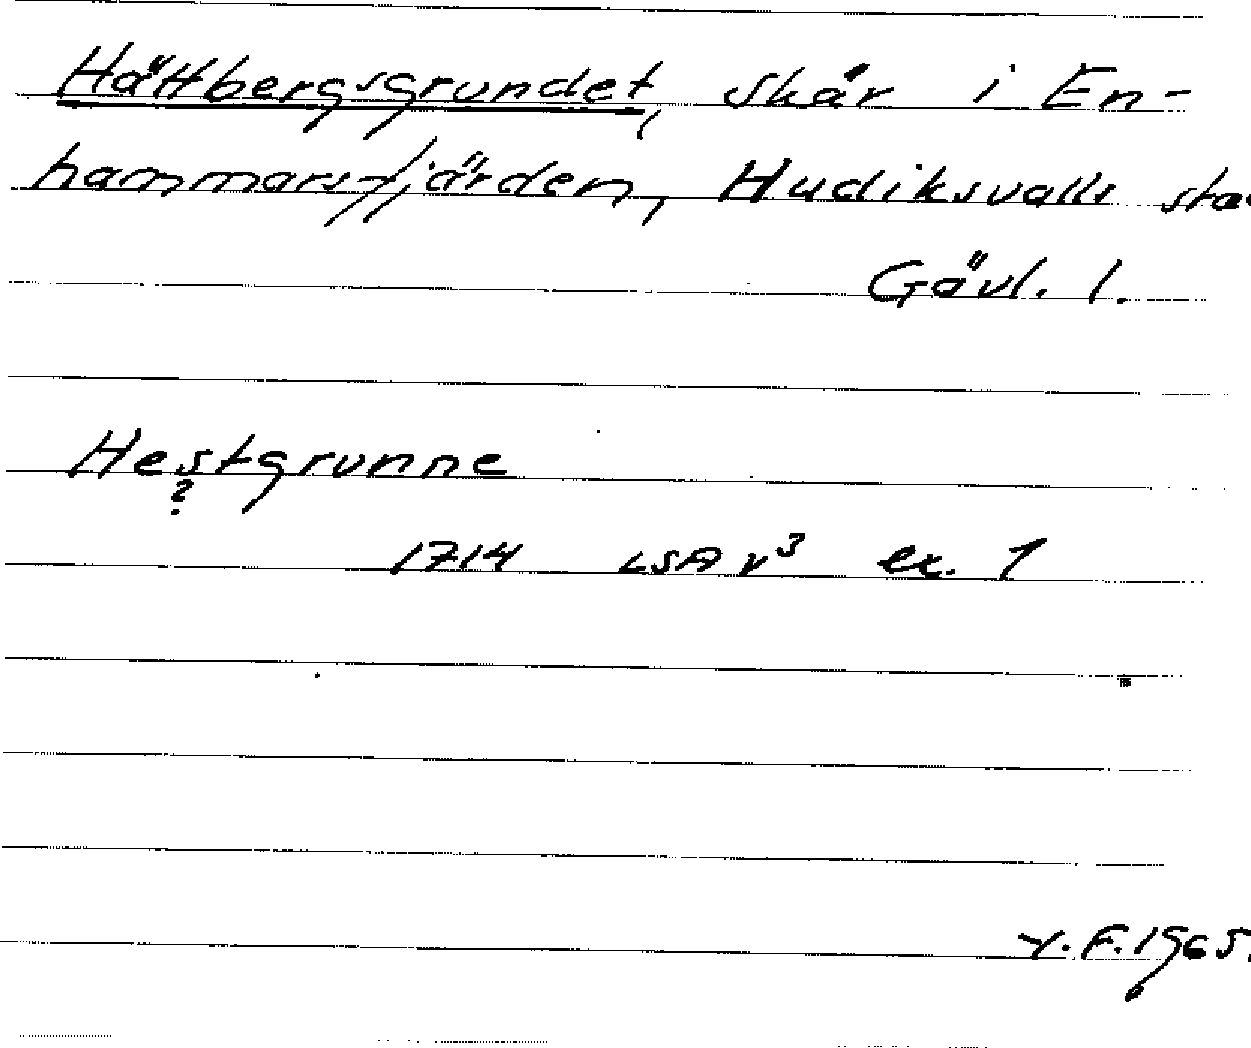 Hättbergsgrundet, skär i En-
hammarsfjärden, Hudiksvalls
Gävl. l.
Hestgrunne
?
1714 LSA v³ ex. 1
Y.F. 1965.